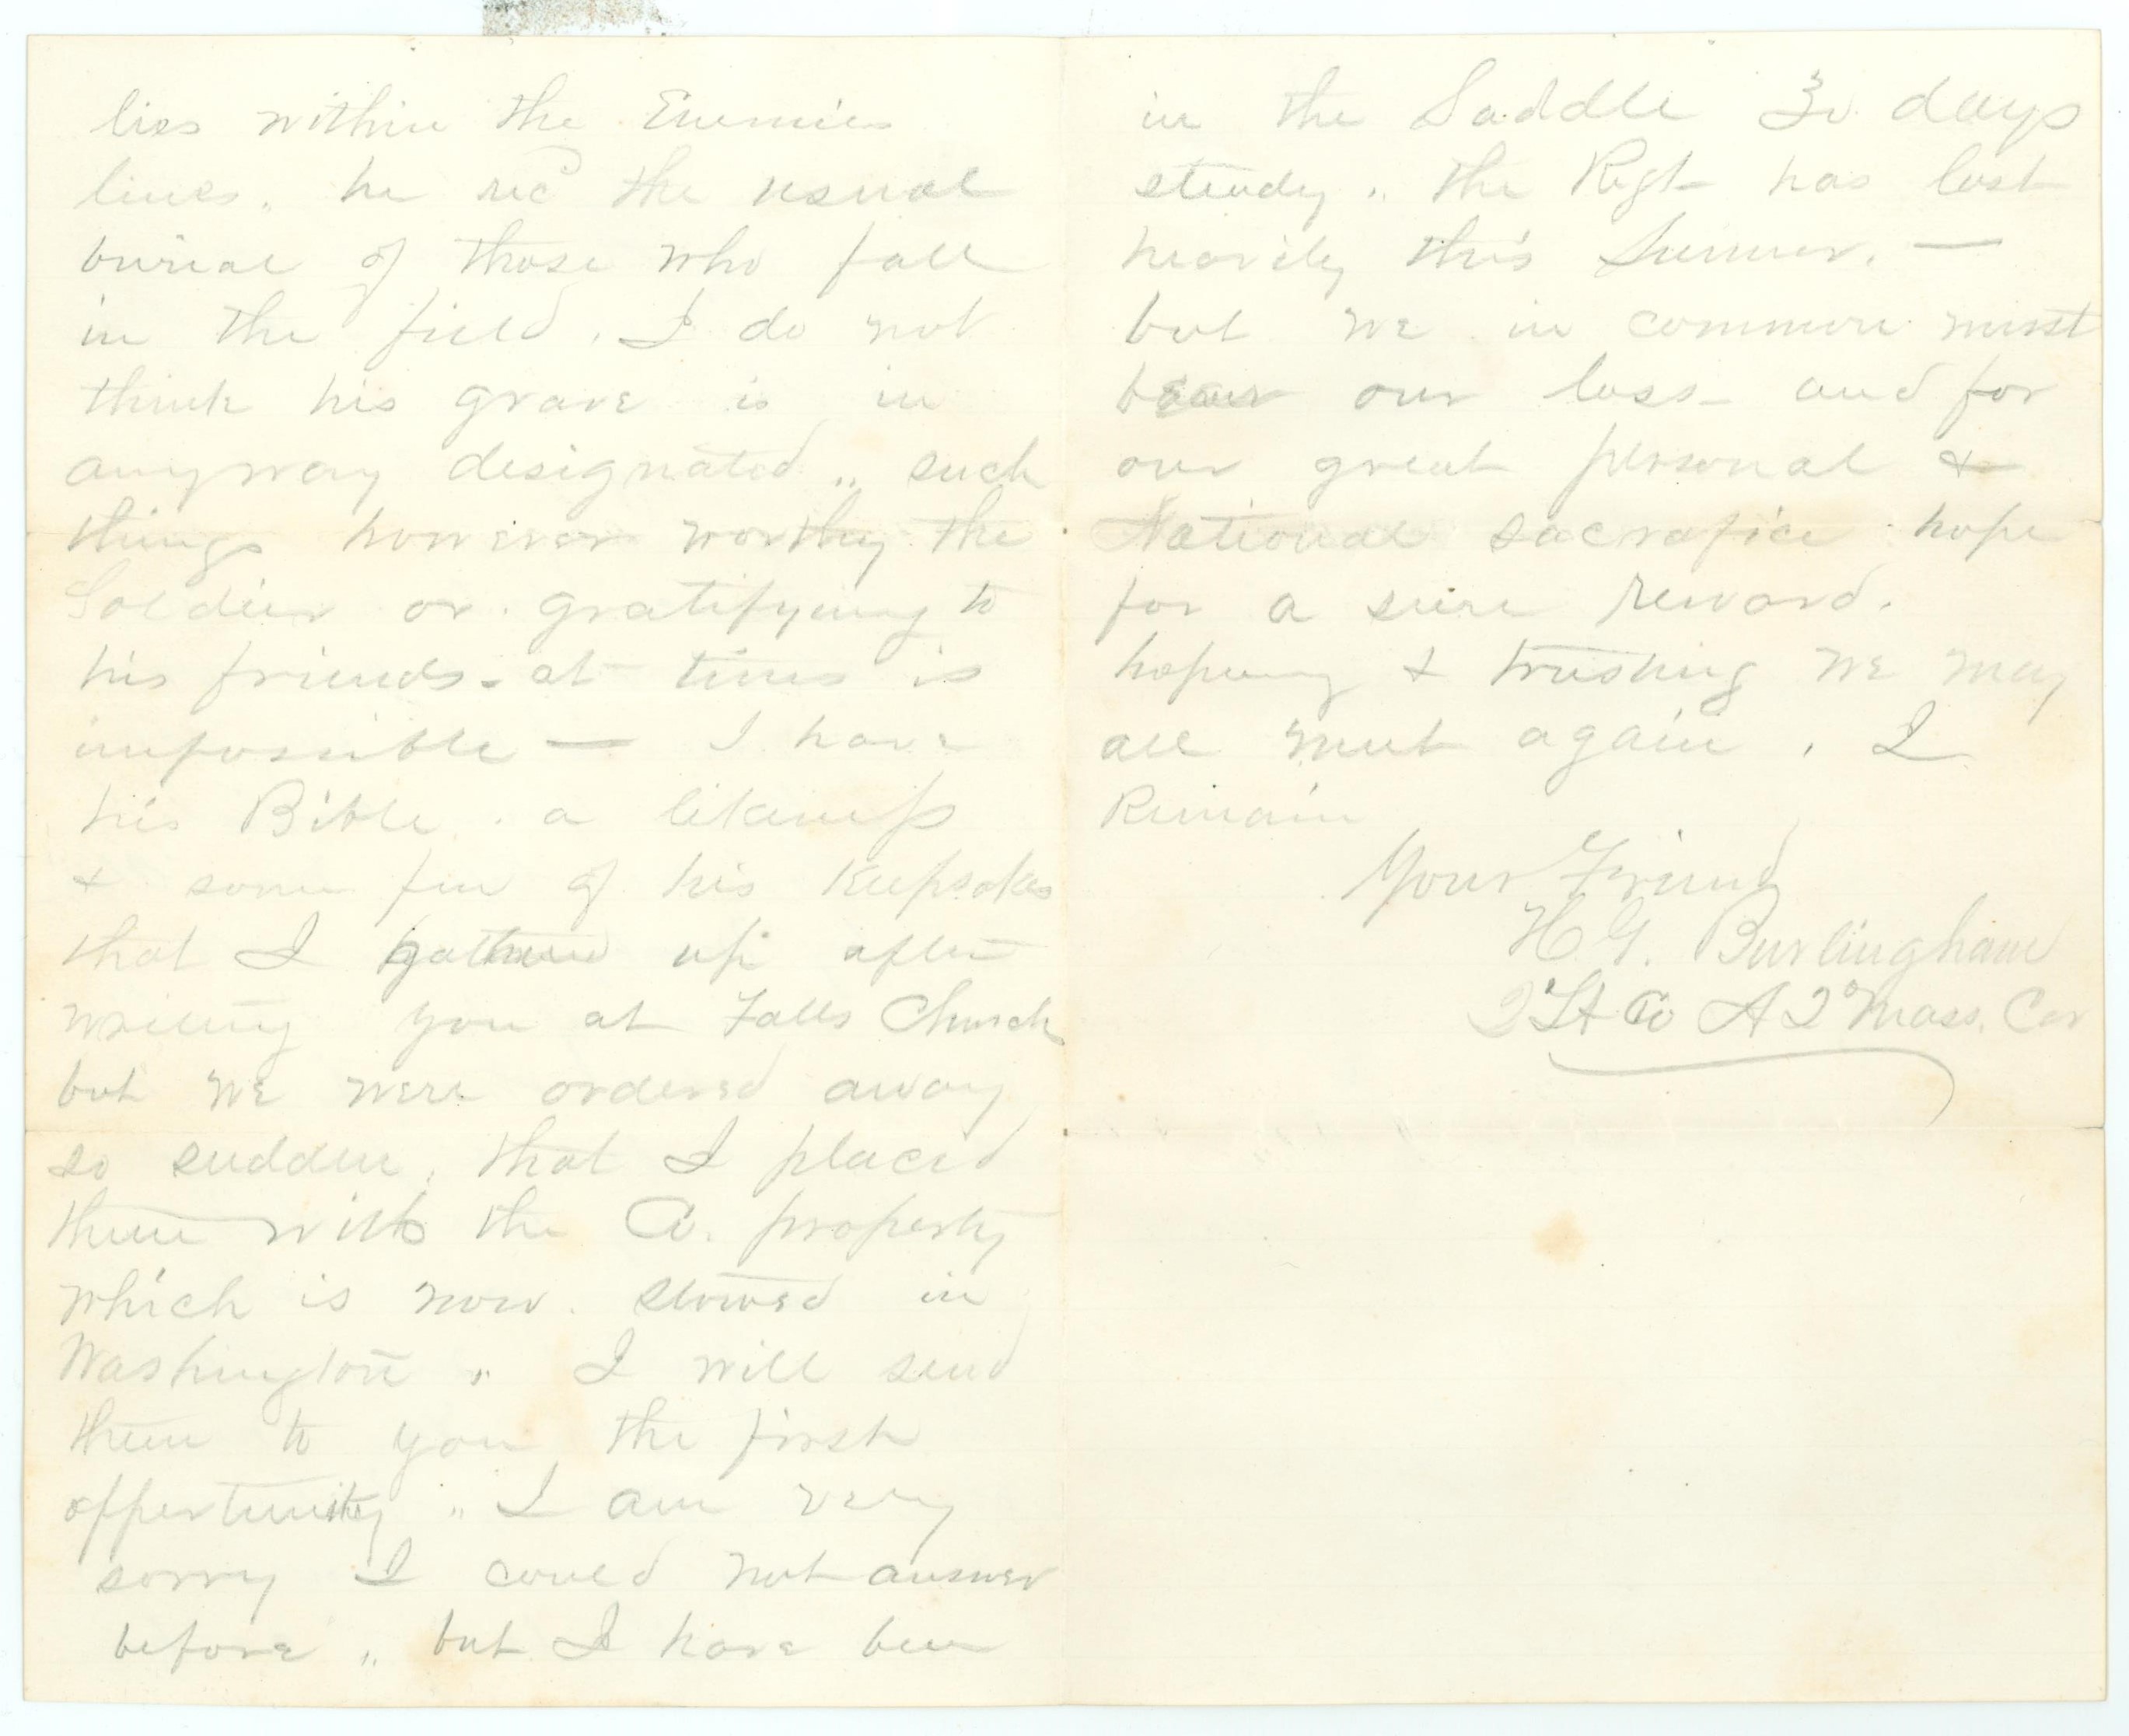 lies within the Enemies
lines. he rec^d the usual
burial of those who fall
in the field. I do not
think his grave is in
anyway designated.. such
things however worthy the
Soldier or gratifying to
his friends - at times is
impossible — I have
his Bible. a likeness
& some few of his Keepsakes
that I gathered up after
writing you at Falls Church
but we were ordered away
so sudden, that I placed
them with the Co. property
which is now stowed in
Washington.. I will send
them to you the first
oppertunity.. I am very
sorry I could not answer
before.. but I have been
in the Saddle 30 days
steady.. the Regt has lost
heavily this Summer. —
but we in common must
bear our loss - and for
our great personal &
National sacrafice hope
for a sure reward.
hopeing & trusting we may
all meet again. I
Remain
Your Friend
H. G. Burlingham
2^d Lt Co A 2^d Mass. Cav